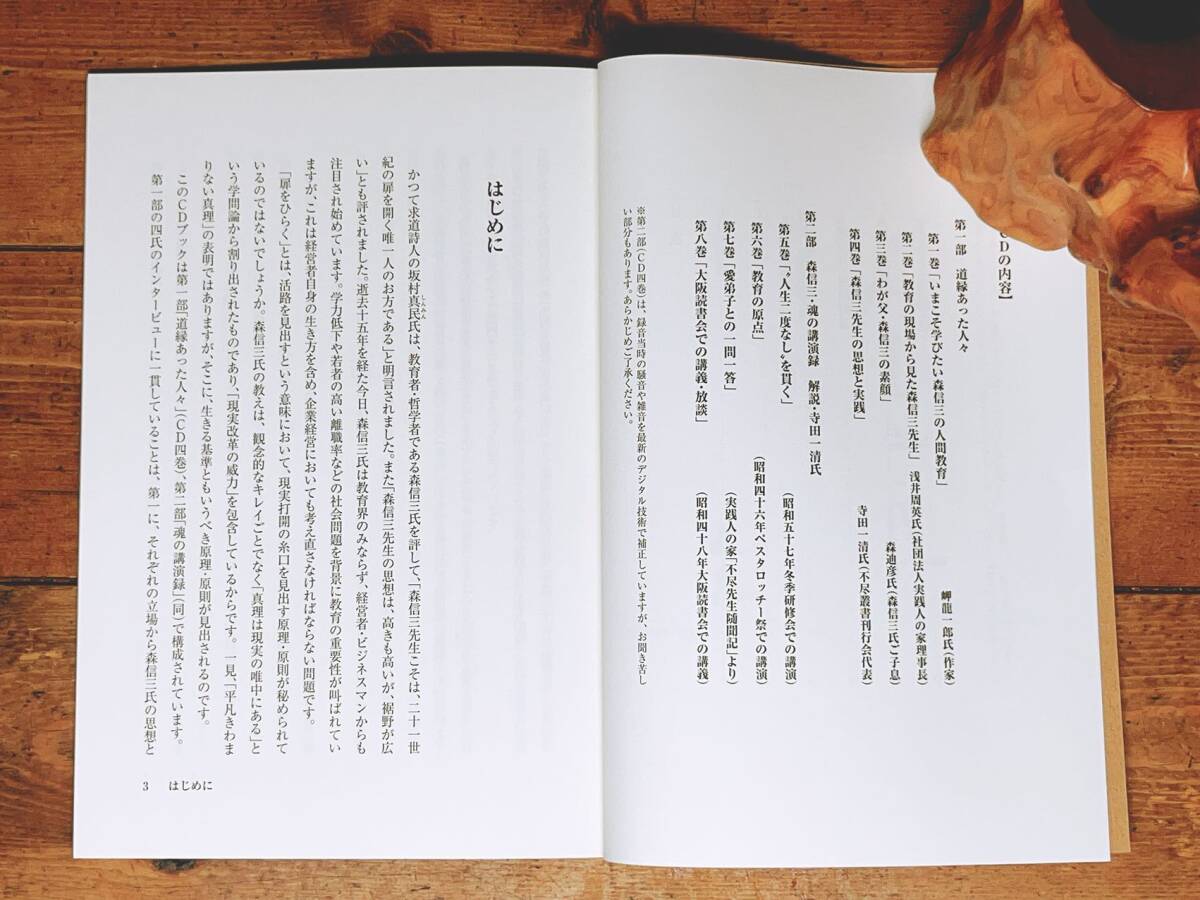 CDの内容】
第一部　道縁あった人々
第一巻「いまこそ学びたい森信三の人間教育」　岬龍一郎氏(作家)
第二巻「教育の現場から見た森信三先生」　浅井周英氏(社団法人実践人の家理事長)
第三巻「わが父・森信三の素顔」　森迪彦氏(森信三氏ご子息)
第四巻「森信三先生の思想と実践」　寺田一清氏(不尽叢書刊行会代表)
第二部　森信三・魂の講演録　解説・寺田一清氏
第五巻「〝人生二度なし〟を貫く」　(昭和五十七年冬季研修会での講演)
第六巻「教育の原点」　(昭和四十六年ペスタロッチー祭での講演)
第七巻「愛弟子との一問一答」　(実践人の家「不尽先生随聞記」より)
第八巻「大阪読書会での講義・放談」　(昭和四十八年大阪読書会での講義)
※第二部(CD四巻)は、録音当時の騒音や雑音を最新のデジタル技術で補正していますが、お聞き苦し
い部分もあります。あらかじめご了承ください。
はじめに
かつて求道詩人の坂村真民氏は、教育者・哲学者である森信三氏を評して、「森信三先生こそは、二十一世
しんみん
紀の扉を開く唯一人のお方である」と明言されました。また「森信三先生の思想は、高きも高いが、裾野が広
い」とも評されました。逝去十五年を経た今日、森信三氏は教育界のみならず、経営者・ビジネスマンからも
注目され始めています。学力低下や若者の高い離職率などの社会問題を背景に教育の重要性が叫ばれてい
ますが、これは経営者自身の生き方を含め、企業経営においても考え直さなければならない問題です。
「扉をひらく」とは、活路を見出すという意味において、現実打開の糸口を見出す原理・原則が秘められて
いるのではないでしょうか。森信三氏の教えは、観念的なキレイごとでなく「真理は現実の唯中にある」と
いう学問論から割り出されたものであり、「現実改革の威力」を包含しているからです。一見、「平凡きわま
りない真理」の表明ではありますが、そこに、生きる基準ともいうべき原理・原則が見出されるのです。
このCDブックは第一部「道縁あった人々」(CD四巻)、第二部「魂の講演録」(同)で構成されています。
第一部の四氏のインタービューに一貫していることは、第一に、それぞれの立場から森信三氏の思想と
3　はじめに